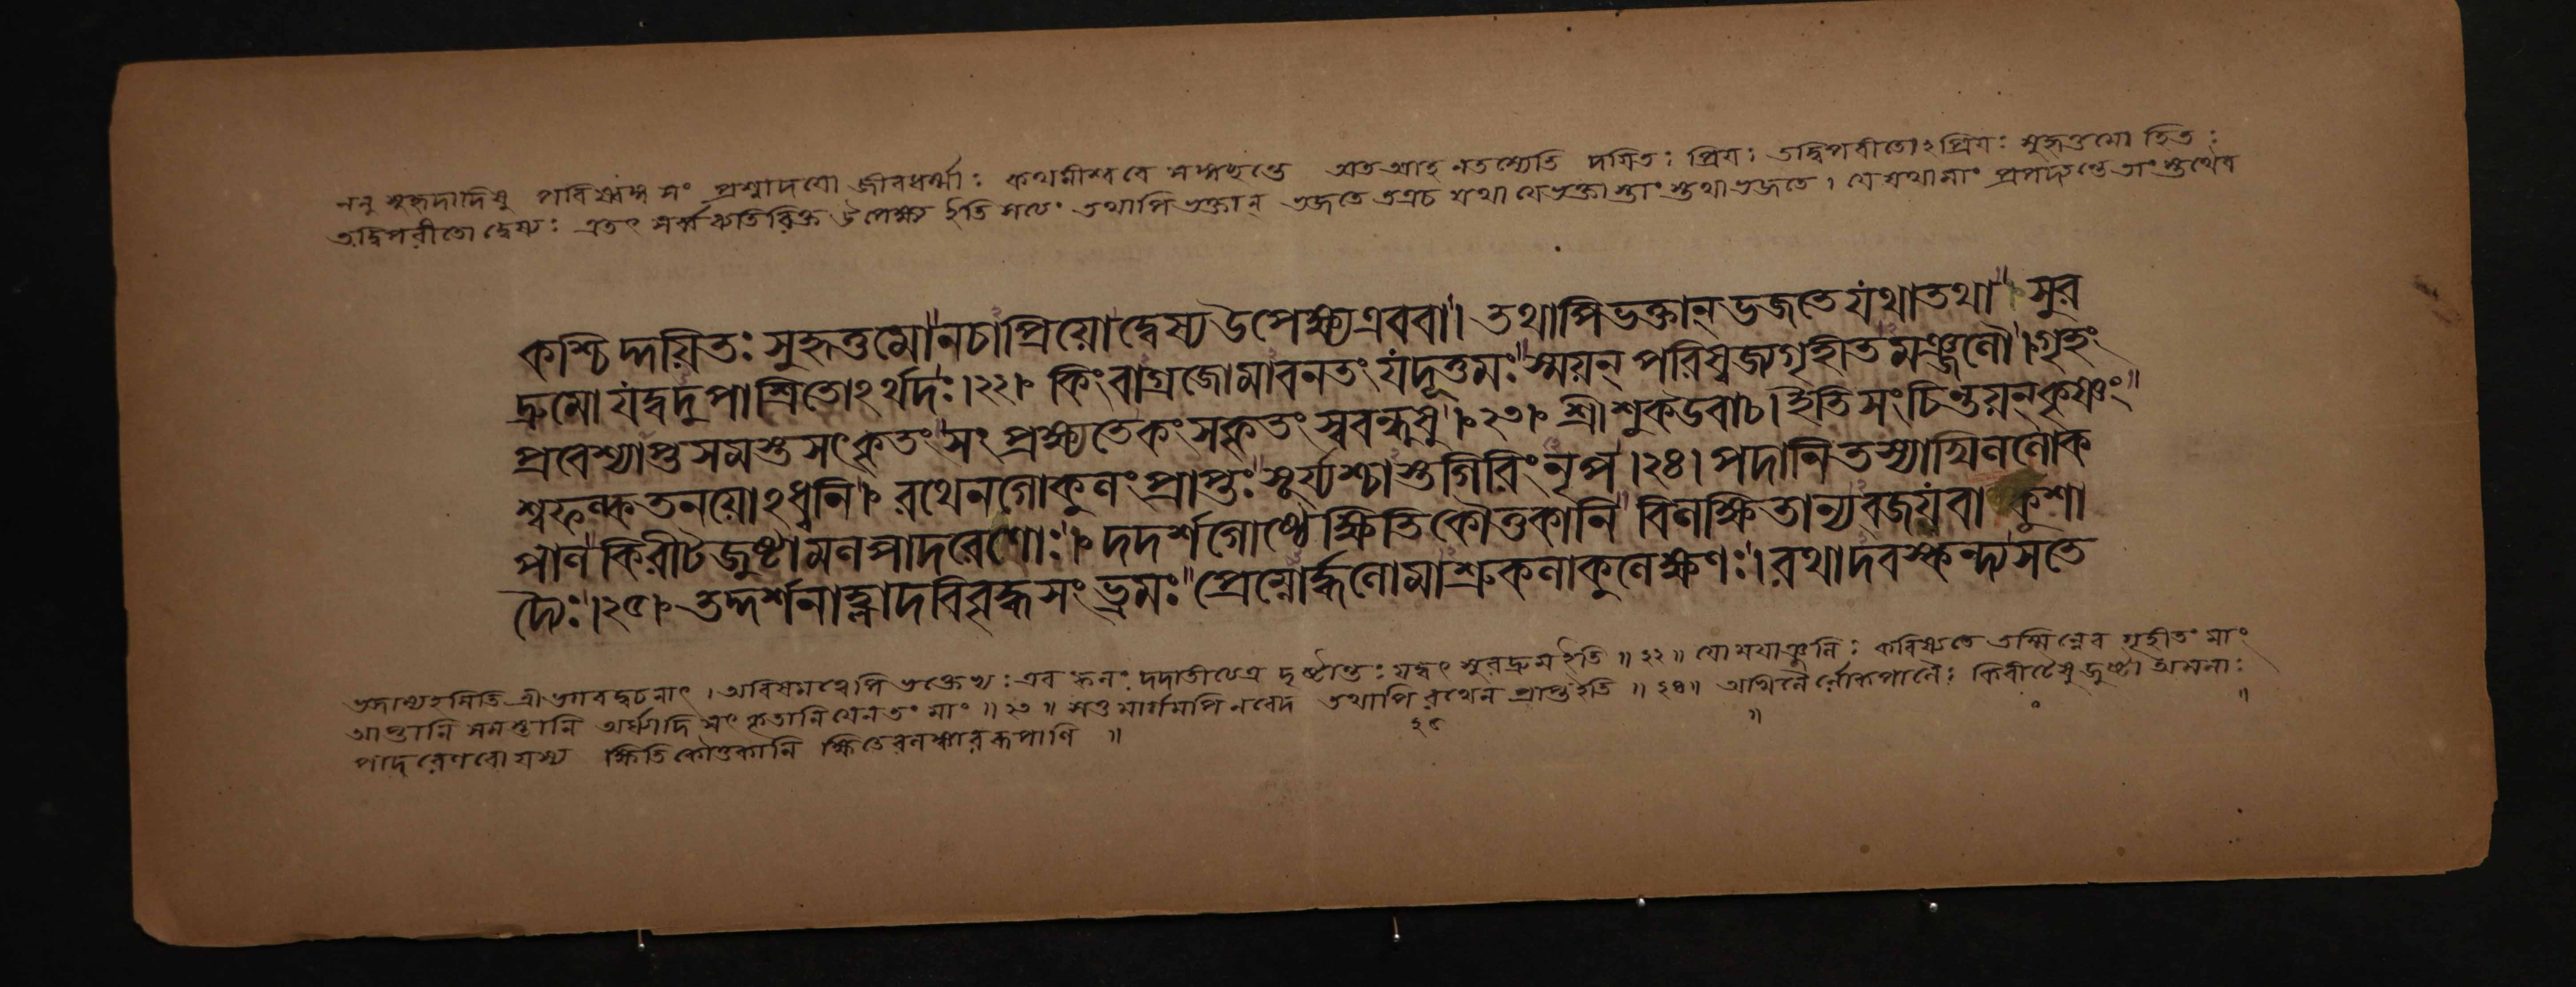 ননু সুহৃদাদিষু পরিষ্বঙ্গ সং প্রশ্নাদযো জীবধর্ম্মাঃ কথমীশ্বরে সম্ভবন্তে অতআহ নতস্যেতি দয়িতঃ প্রিয়ঃ তদ্বিপরীতোঽপ্রিয়ঃ সুহৃত্তমো হিতঃ
তদ্বিপরীতো দ্বেষ্যঃ এতৎ সর্ব্বব্যতিরিক্ত উপেক্ষ্য ইতি সত্যং তথাপি ভক্তান্ ভজতে তত্রচ যথা যেভক্তাস্তাং স্তথাভজতে । যে যথামাং প্রপদ্যন্তে তাং স্তথৈব
কশ্চিদ্দয়িতঃ সুহৃত্তমো নচাপ্রিয়োদ্বেষ্য উপেক্ষ্যএববা । তথাপিভক্তান্ ভজতেযথাতথা সুর
দ্রুমোযদ্বদুপাশ্রিতোঽর্থদঃ ।২২। কিংবাগ্রজোমাবনতং যদূত্তমঃ স্ময়ন্ পরিষ্বজ্যগৃহীতমঞ্জলৌ । গৃহং
প্রবেশ্যাপ্তসমস্তসৎকৃতং সং প্রক্ষ্যতেকংসকৃতং স্ববন্ধুষু ।২৩। শ্রীশুকউবাচ। ইতিসংচিন্তয়ন্কৃষ্ণং
শ্বফল্কতনয়োঽধ্বনি । রথেনগোকুলংপ্রাপ্তঃ সূর্য্যশ্চাস্তগিরিংনৃপ ।২৪। পদানিতস্যাখিললোক
পাল কিরীটজুষ্টামলপাদরেণোঃ । দদর্শগোষ্ঠেক্ষিতিকৌতুকানি বিলক্ষিতান্যব্জযবাঙ্কুশা
দ্যৈঃ ।২৫। তদ্দর্শনাহ্লাদবিবৃদ্ধসংভ্রমঃ প্রেম্নোর্দ্ধলোমাশ্রুকলাকুলেক্ষণঃ । রথাদবস্কন্দ্যসতে
ভজাম্যহমিতি শ্রীভগবদ্বচনাৎ । অবিষমত্বেপি ভক্তেষ্বঃ এব ফলং দদাতীত্যত্র দৃষ্টান্তঃ যদ্বৎ সুরদ্রুমইতি ॥ ২২ ॥ যোময়াঞ্জলিঃ করিষ্যতে তস্মিন্নেব গৃহীতং মাং
আপ্তানি সমস্তানি অর্ঘ্যাদি সৎ কৃতানি যেনতং মাং ॥ ২৩ ॥ সতু মার্গমপি নবেদ তথাপি রথেন প্রাপ্তইতি ॥ ২৪॥ অখিলৈ র্লোকপালৈঃ কিরীটৈষুজুষ্টা অমলাঃ
পাদরেণবো যস্য ক্ষিতিকৌতুকানি ক্ষিতেরলঙ্কাররূপাণি ॥ ২৫ ॥